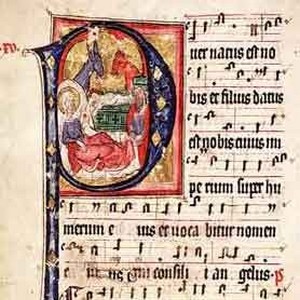 xv.
P uer natus est no
bis et filius datus
est nobis cuius im
pe rium super hu
merum e ius et uoca bitur nomen
e ius consili i an gelus p